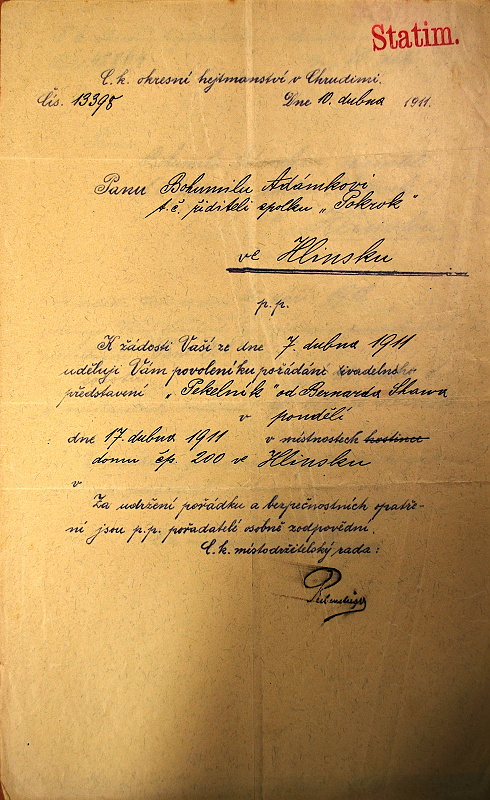 Statim.
C. k. okresní hejtmanství v Chrudimi.
Čís. 13398 Dne 10. dubna 1911.
Panu Bohumilu Adámkovi
t. č. řiditeli spolku „Pokrok“
ve Hlinsku
p. p.
K žádosti Vaší ze dne 7. dubna 1911
uděluji Vám povolení ku pořádání divadelního
představení „Pekelník“ od Bernarda Shawa
v pondělí
dne 17. dubna 1911 v místnostech hostince
domu čp. 200 ve Hlinsku
v
Za udržení pořádku a bezpečnostních opatře-
ní jsou p. p. pořadatelé osobně zodpovědni.
C. k. místodržitelský rada: